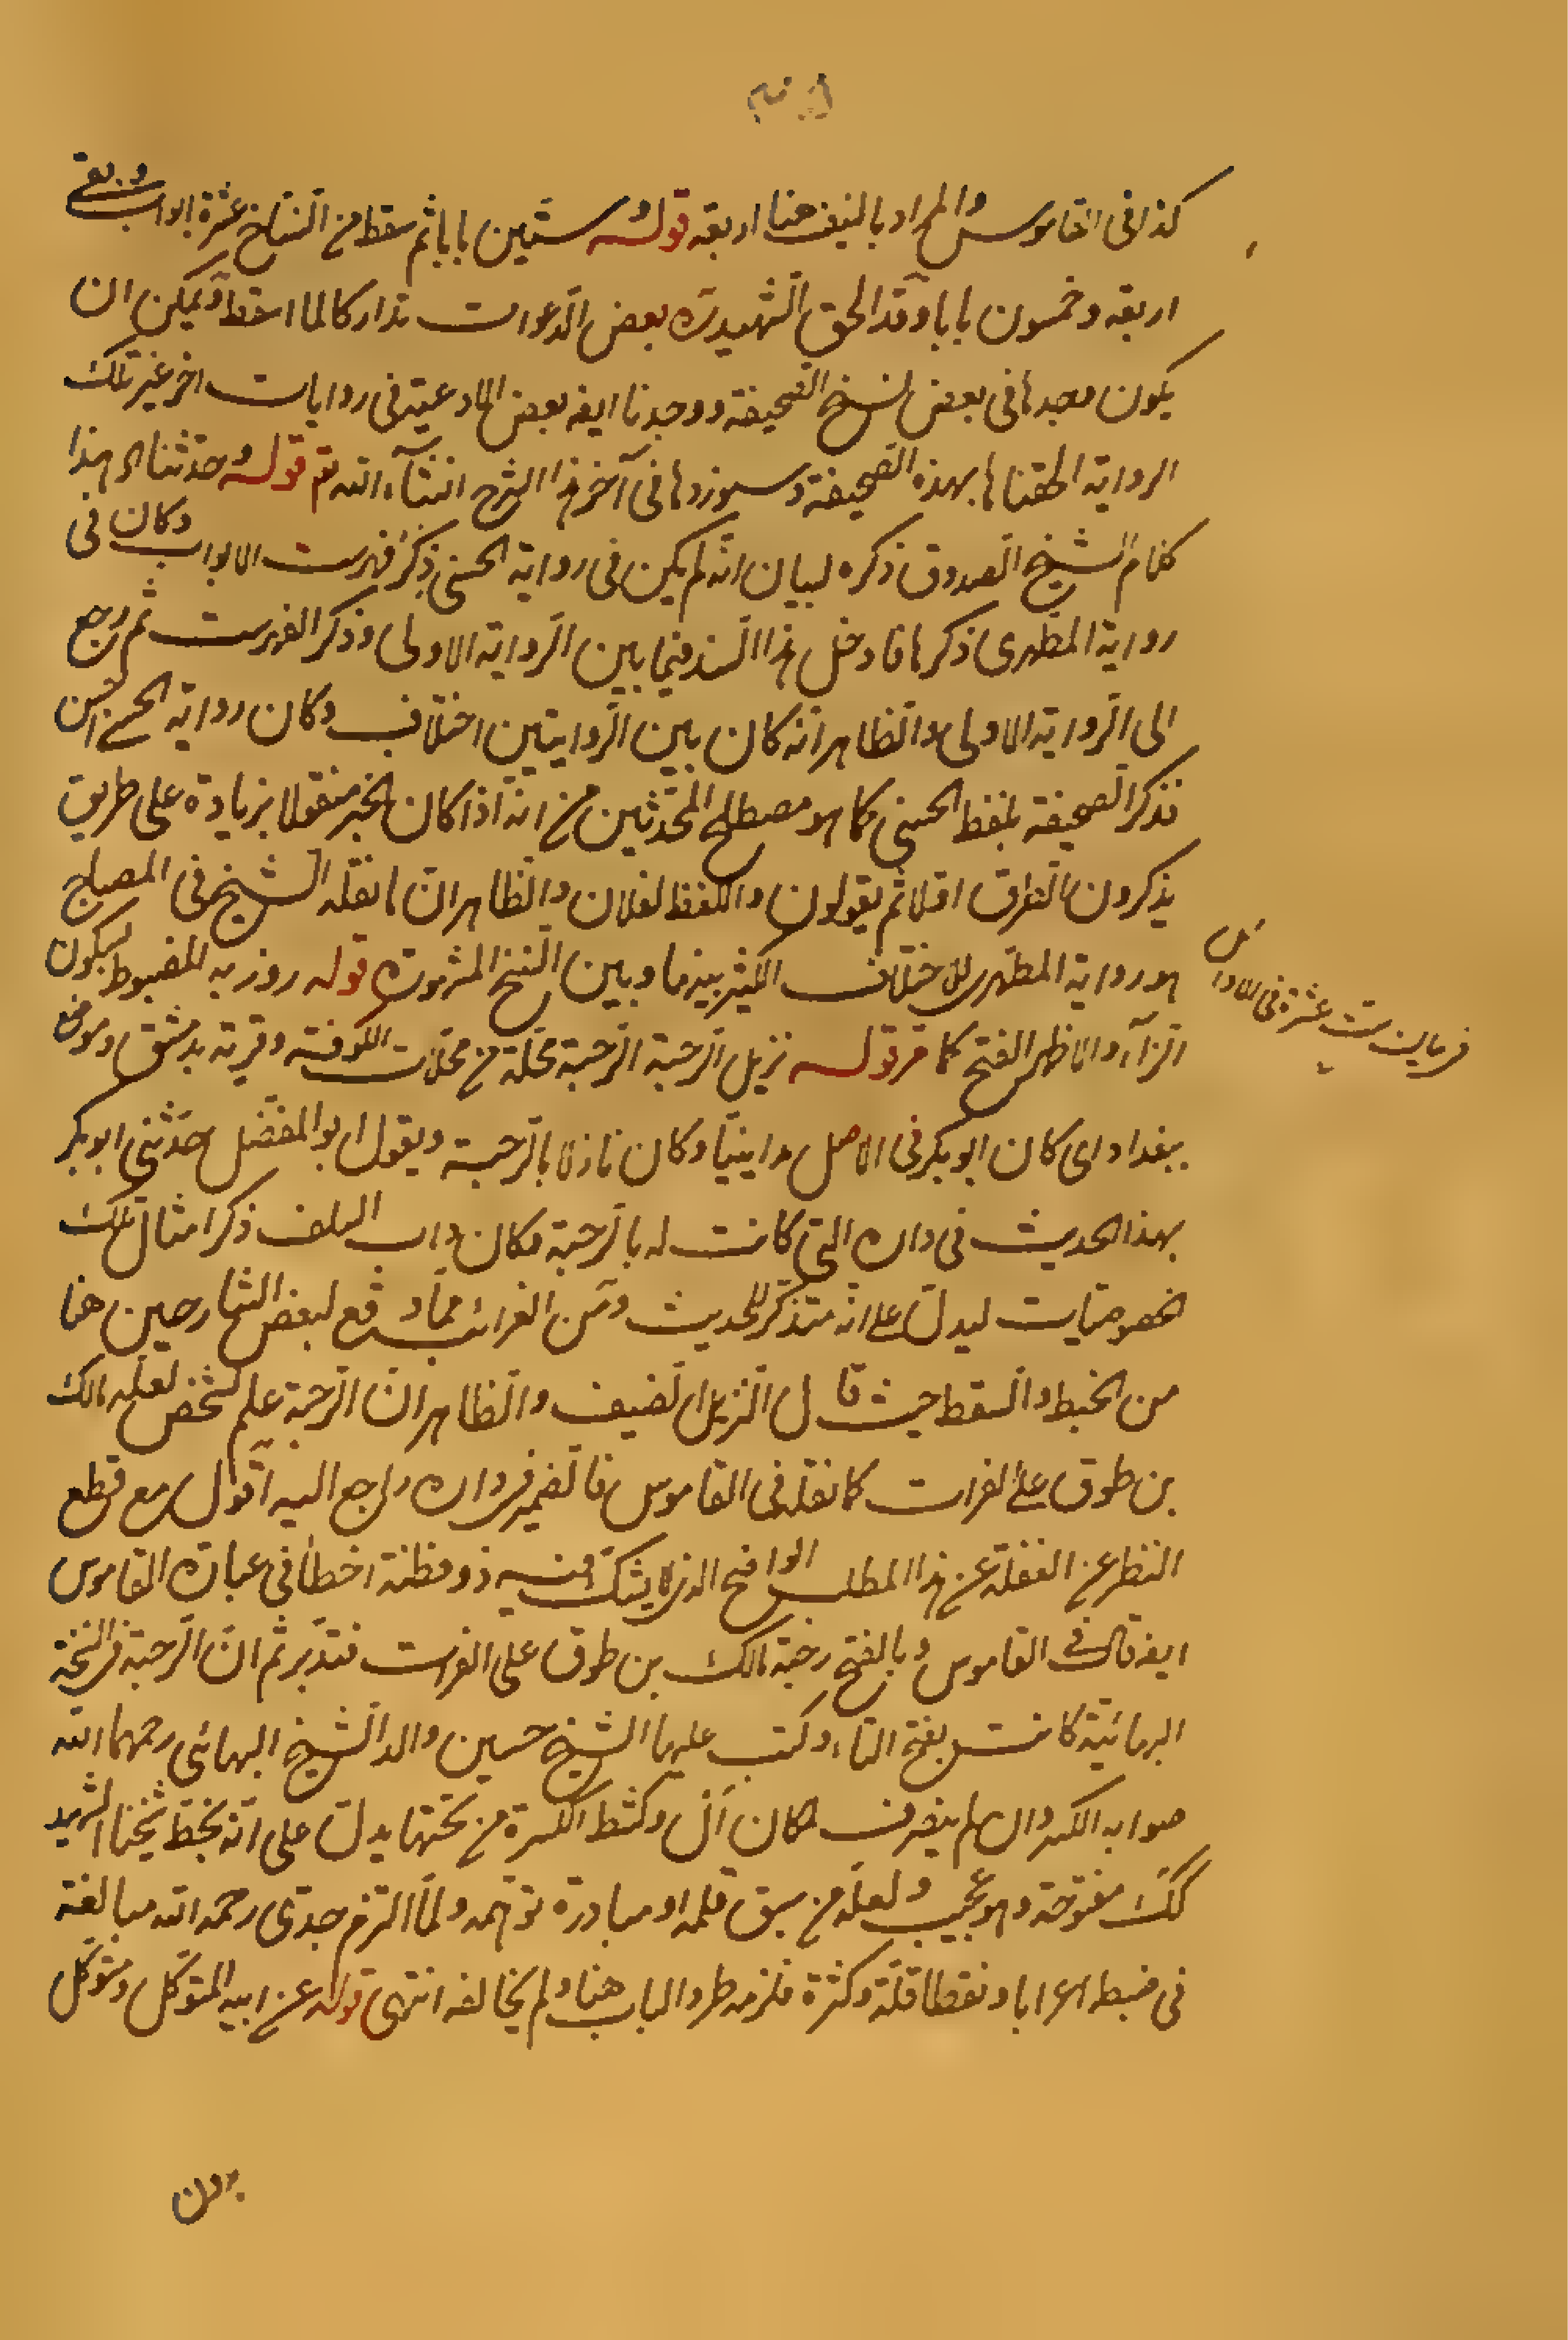 كذا في القاموس والمراد بالنيف هنا اربعة قوله ستين بابا ثم سقط من النساخ عشرة ابواب وبقي
اربعة وخمسون بابا وقد الحق الشهيد ره بعض الدعوات تداركا لما اسقط ويمكن ان
يكون وجدها في بعض نسخ الصحيفة ووجدنا ايضا بعض الادعية في روايات اخر غير تلك
الرواية الحقناها بهذه الصحيفة وسنوردها في آخر هذا الشرح انشاء الله تع قوله وحدثنا اه هذا
كلام الشيخ الصدوق ذكره لبيان انه لم يكن في رواية الحسني ذكر فهرست الابواب وكان في
رواية المطهري ذكرها فادخل هذا السند فيما بين الرواية الاولى وذكر الفهرست ثم رجع
الى الرواية الاولى والظاهر انه كان بين الروايتين اختلاف وكان رواية الحسني احسن
فذكر الصحيفة بلفظ الحسني كما هو مصطلح المحدثين من انه اذا كان الخبر منقولا بزيادة على طريق
يذكرون الطرق اولا ثم يقولون واللفظ لفلان والظاهر ان ما نقله الشيخ في المصباح
هو رواية المطهري للاختلاف الكثير بينها وبين النسخ المشهورة قوله روزبه المضبوط بسكون
الزاء والاظهر الفتح كما مر قوله نزيل الرحبة الرحبة محلة من محلات الكوفة وقرية بدمشق وموضع
ببغداد اى كان ابو بكر في الاصل مداينيا وكان نازلا بالرحبة ويقول ابو المفضل حدثني ابو بكر
بهذا الحديث في داره التي كانت له بالرحبة فكان داب السلف ذكر امثال تلك
الخصوصيات ليدل على انه متذكر للحديث ومن الغرائب مما وقع لبعض الشارحين هنا
من الخبط والسقط حيث قال النزيل الضيف والظاهر ان الرحبة علم لشخص لعله مالك
بن طوق على الفرات كما نقله في القاموس فالضمير في داره راجع اليه اقول مع قطع
النظر عن الغفلة عن هذا المطلب الواضح الذي لا يشك فيه ذو فطنة اخطأ في عبارة القاموس
ايضا قال في القاموس وبالفتح رحبة مالك بن طوق على الفرات فتدبر ثم ان الرحبة في النسخة
البهائية كانت بفتح التاء وكتب عليها الشيخ حسين والد الشيخ البهائي رحمهما الله
صوابه الكسر وان لم ينصرف لمكان أل وكشط الكسرة من تحتها يدل على انه بخط شيخنا الشهيد
كك مفتوحة وهو عجيب ولعله من سبق قلمه او مبادرة توهمه ولما التزم جدى رحمه الله مبالغة
في ضبط اعرابا ونقطا قلة وكثرة فلزمه طرد الباب هنا ولم يخالفه انتهى قوله عن ابيه المتوكل ومتوكل